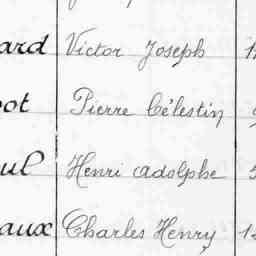 ard Victor Joseph 1
ot Pierre Célestin
ul Henri adolphe
aux Charles Henry 1